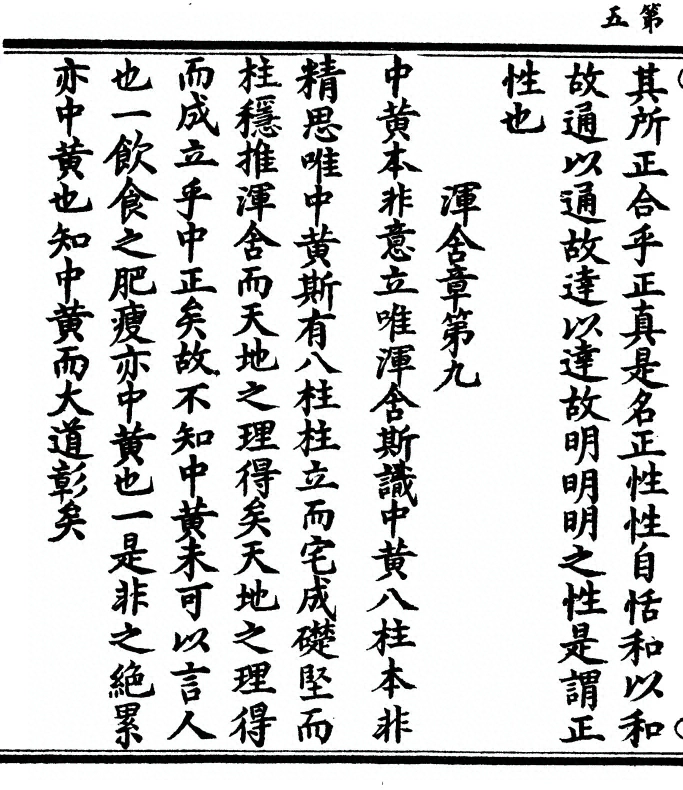 第五
其所正合乎正真是名正性性自恬和以和
故通以通故達以達故明明明之性是謂正
性也
渾舍章第九
中黄本非意立唯渾舍斯識中黄八柱本非
精思唯中黄斯有八柱柱立而宅成礎堅而
柱穩推渾舍而天地之理得矣天地之理得
而成立乎中正矣故不知中黄未可以言人
也一飲食之肥瘦亦中黄也一是非之絶累
亦中黄也知中黄而大道彰矣